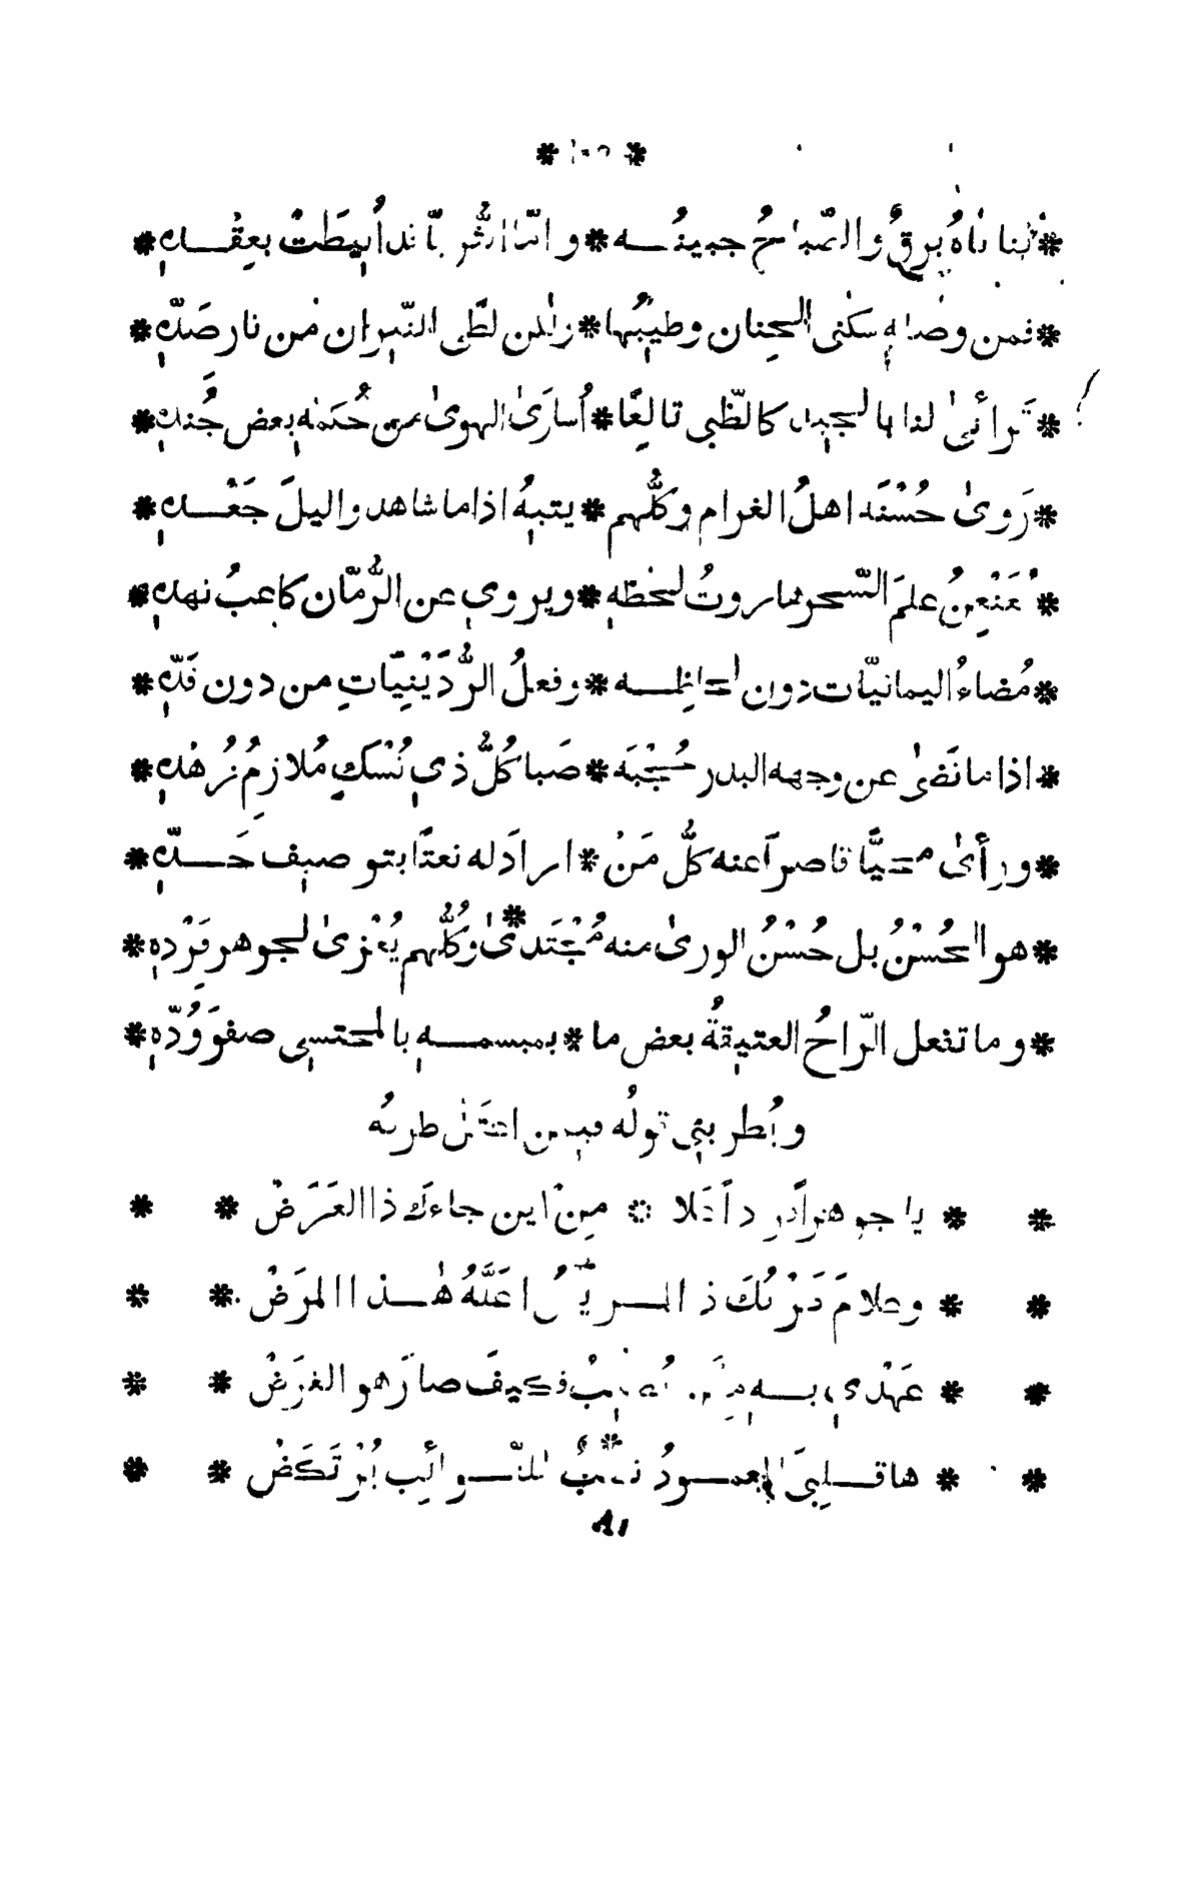 * ١٠٥ *
* برقٌ والصّباحُ جبينُه * وامّا الثُّريّا قد اُبيطَتْ بعِقْدهِ *
* فمن وصله سكنى الجِنان وطيبُها * ومن لظَى النّيران من نار صَدّهِ *
* تَراأىٰ لنا بالجيد كالظّبى تالعًا * اُسارَىٰ الهوىٰ من حُكمهِ بعض جُندهِ *
* رَوىٰ حُسْنَه اهلُ الغرام وكلُّهم * يتيهُ اذا ما شاهدوا ليلَ جَعْدهِ *
* يُعَنْعِنُ علمَ السّحر هاروتُ لحظهِ * ويروي عن الرُّمّان كاعبُ نهدهِ *
* مُضاءُ اليمانيّات دون لحاظه * وفعلُ الرُّدَيْنِيّاتِ من دون قَدّهِ *
* اذا ما نَضىٰ عن وجهه البدر حُجْبَه * صَبا كُلُّ ذي نُسْكٍ مُلازِمُ زُهْدهِ *
* ورأىٰ محيًّا قاصرًا عنه كلُّ مَنْ * اراد له نعتًا بتوصيف حَدّهِ *
* هو الحُسْنُ بل حُسْنُ الورىٰ منه مُجْتَدىً * وكُلُّهم يُعْزىٰ لجوهر فَرْدهِ *
* وما تفعل الرّاحُ العتيقةُ بعض ما * بمبسمه بالمحتسي صفوَ وُدّهِ *
ويُطربني قولُه فيمن اعتلّ طرفُه
* * يا جوهرًا فردًا علا * مِنْ اين جاءكَ ذا العَرَضْ * *
* * وعلامَ طَرْفُكَ ذا المريضُ اعَلّهُ هٰذا المرَضْ * *
* * عَهْدي به فكيفَ صارَ هو الغرَضْ * *
* * ها قلبىَ المعمودُ نصبٌ * للنّوائب يُرْتَكَضْ * *
٨١